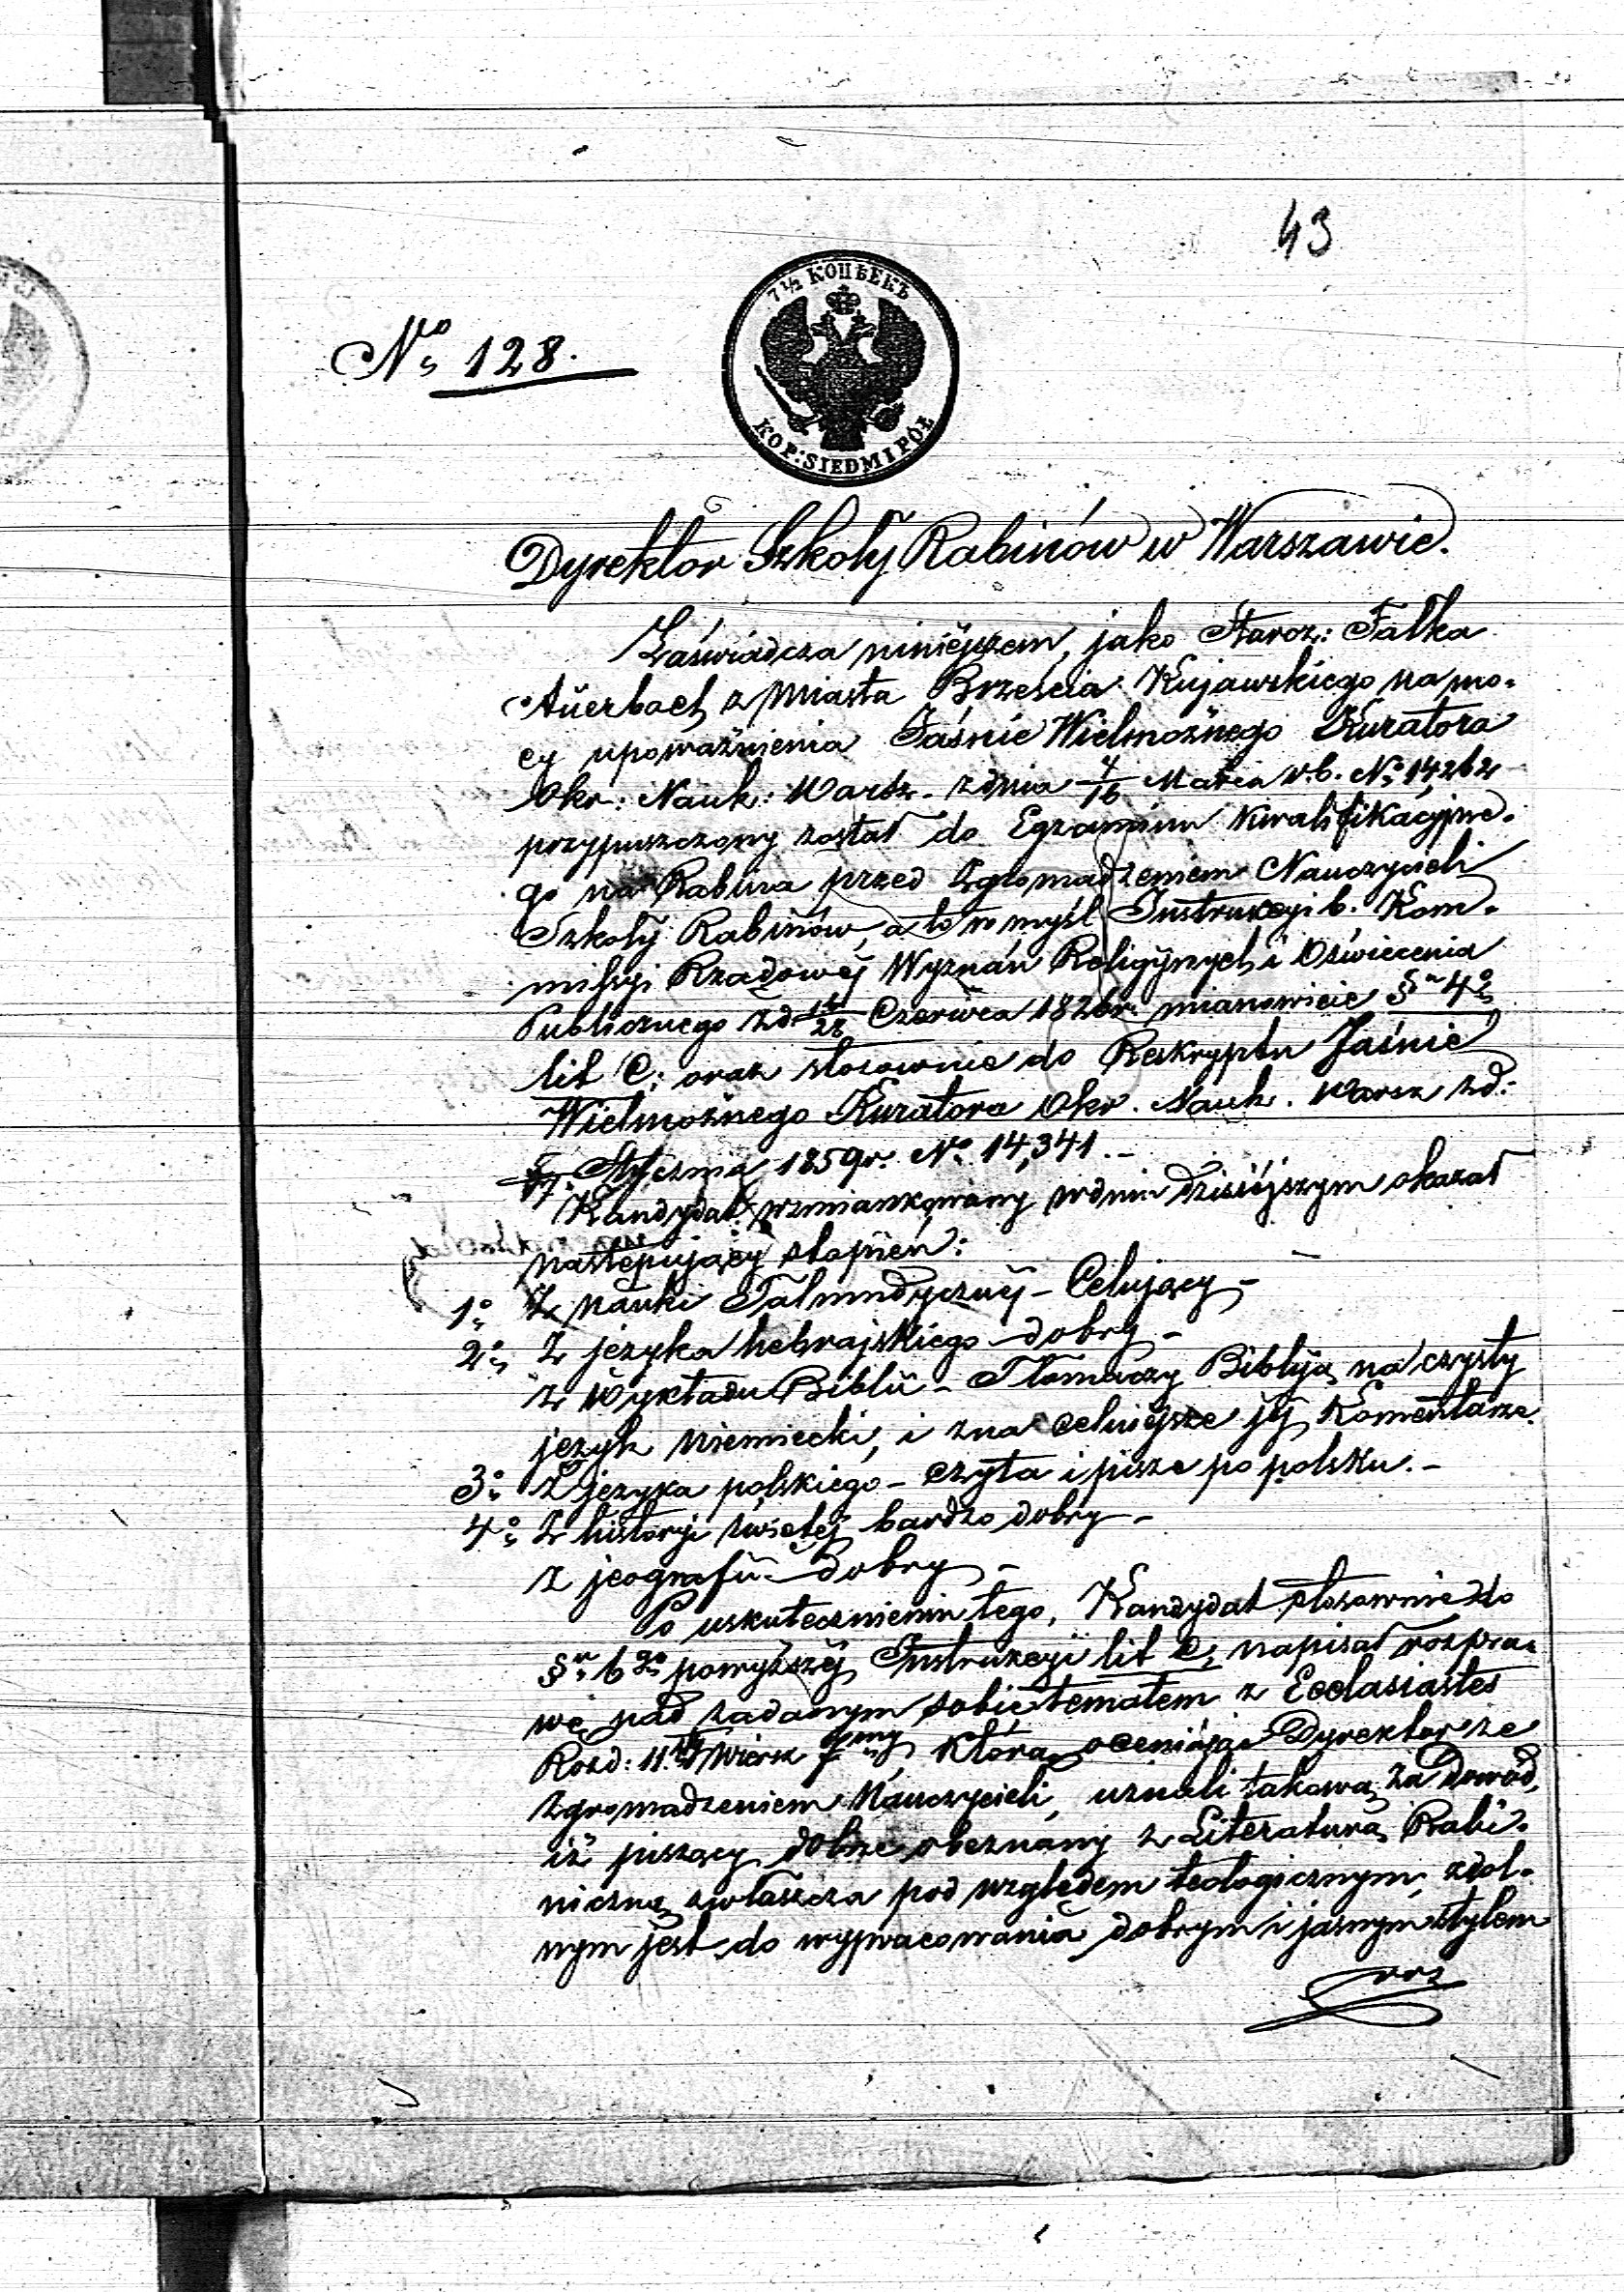 43
7½ КОПѢЕКЪ
KOP: SIEDM I PÓŁ
№ 128.
Dyrektor Szkoły Rabinów w Warszawie.
Zaświadcza niniejszem, jako Staroz: Falka
Auerbach z Miasta Brześcia Kujawskiego na mo-
cy upoważnienia Jaśnie Wielmożnego Kuratora
Okr: Nauk: Warsz. z dnia 4/16 Marca r.b. № 14,262
przypuszczony został do Egzaminu Kwalifikacyjne-
go na Rabina przed Zgromadzeniem Nauczycieli
Szkoły Rabinów, a to w myśl Instrukcyi b. Kom-
missyi Rządowéj Wyznań Religijnych i Oświecenia
Publicznego z d. 28 Czerwca 1826 r. mianowicie § 4
lit C; oraz stosownie do Reskryptu Jaśnie
Wielmożnego Kuratora Okr. Nauk. Warsz z d:
5/17 Stycznia 1859 r. № 14,341.-
Kandydat wzmiankowany w dniu dzisiéjszym okazał
następujący stopień:
1o Z nauki Talmudycznéj - Celujący -
2o Z języka hebrajskiego dobry -
z Wykładu Biblii - Tłomaczy Bibliją na czysty
język niemiecki, i zna celniejsze jéj Komentarze.
3o Z języka polskiego - czyta i pisze po polsku. -
4o Z historyi świętéj bardzo dobry -
z jeografii - dobry -
Po uskutecznieniu tego, Kandydat stosownie do
§ 6go powyższéj Instrukcyi lit C; napisał rozpra-
wę nad zadanym sobie tematem z Ecclasiastes
Rozd: 11. Wiersz którą oceniając Dyrektor ze
Zgromadzeniem Nauczycieli, uznali takową za dowód,
iż piszący dobrze obeznany z Literaturą Rabi-
niczną zwłaszcza pod względem teologicznym, zdol-
nym jest do wypracowania dobrym i jasnym stylem